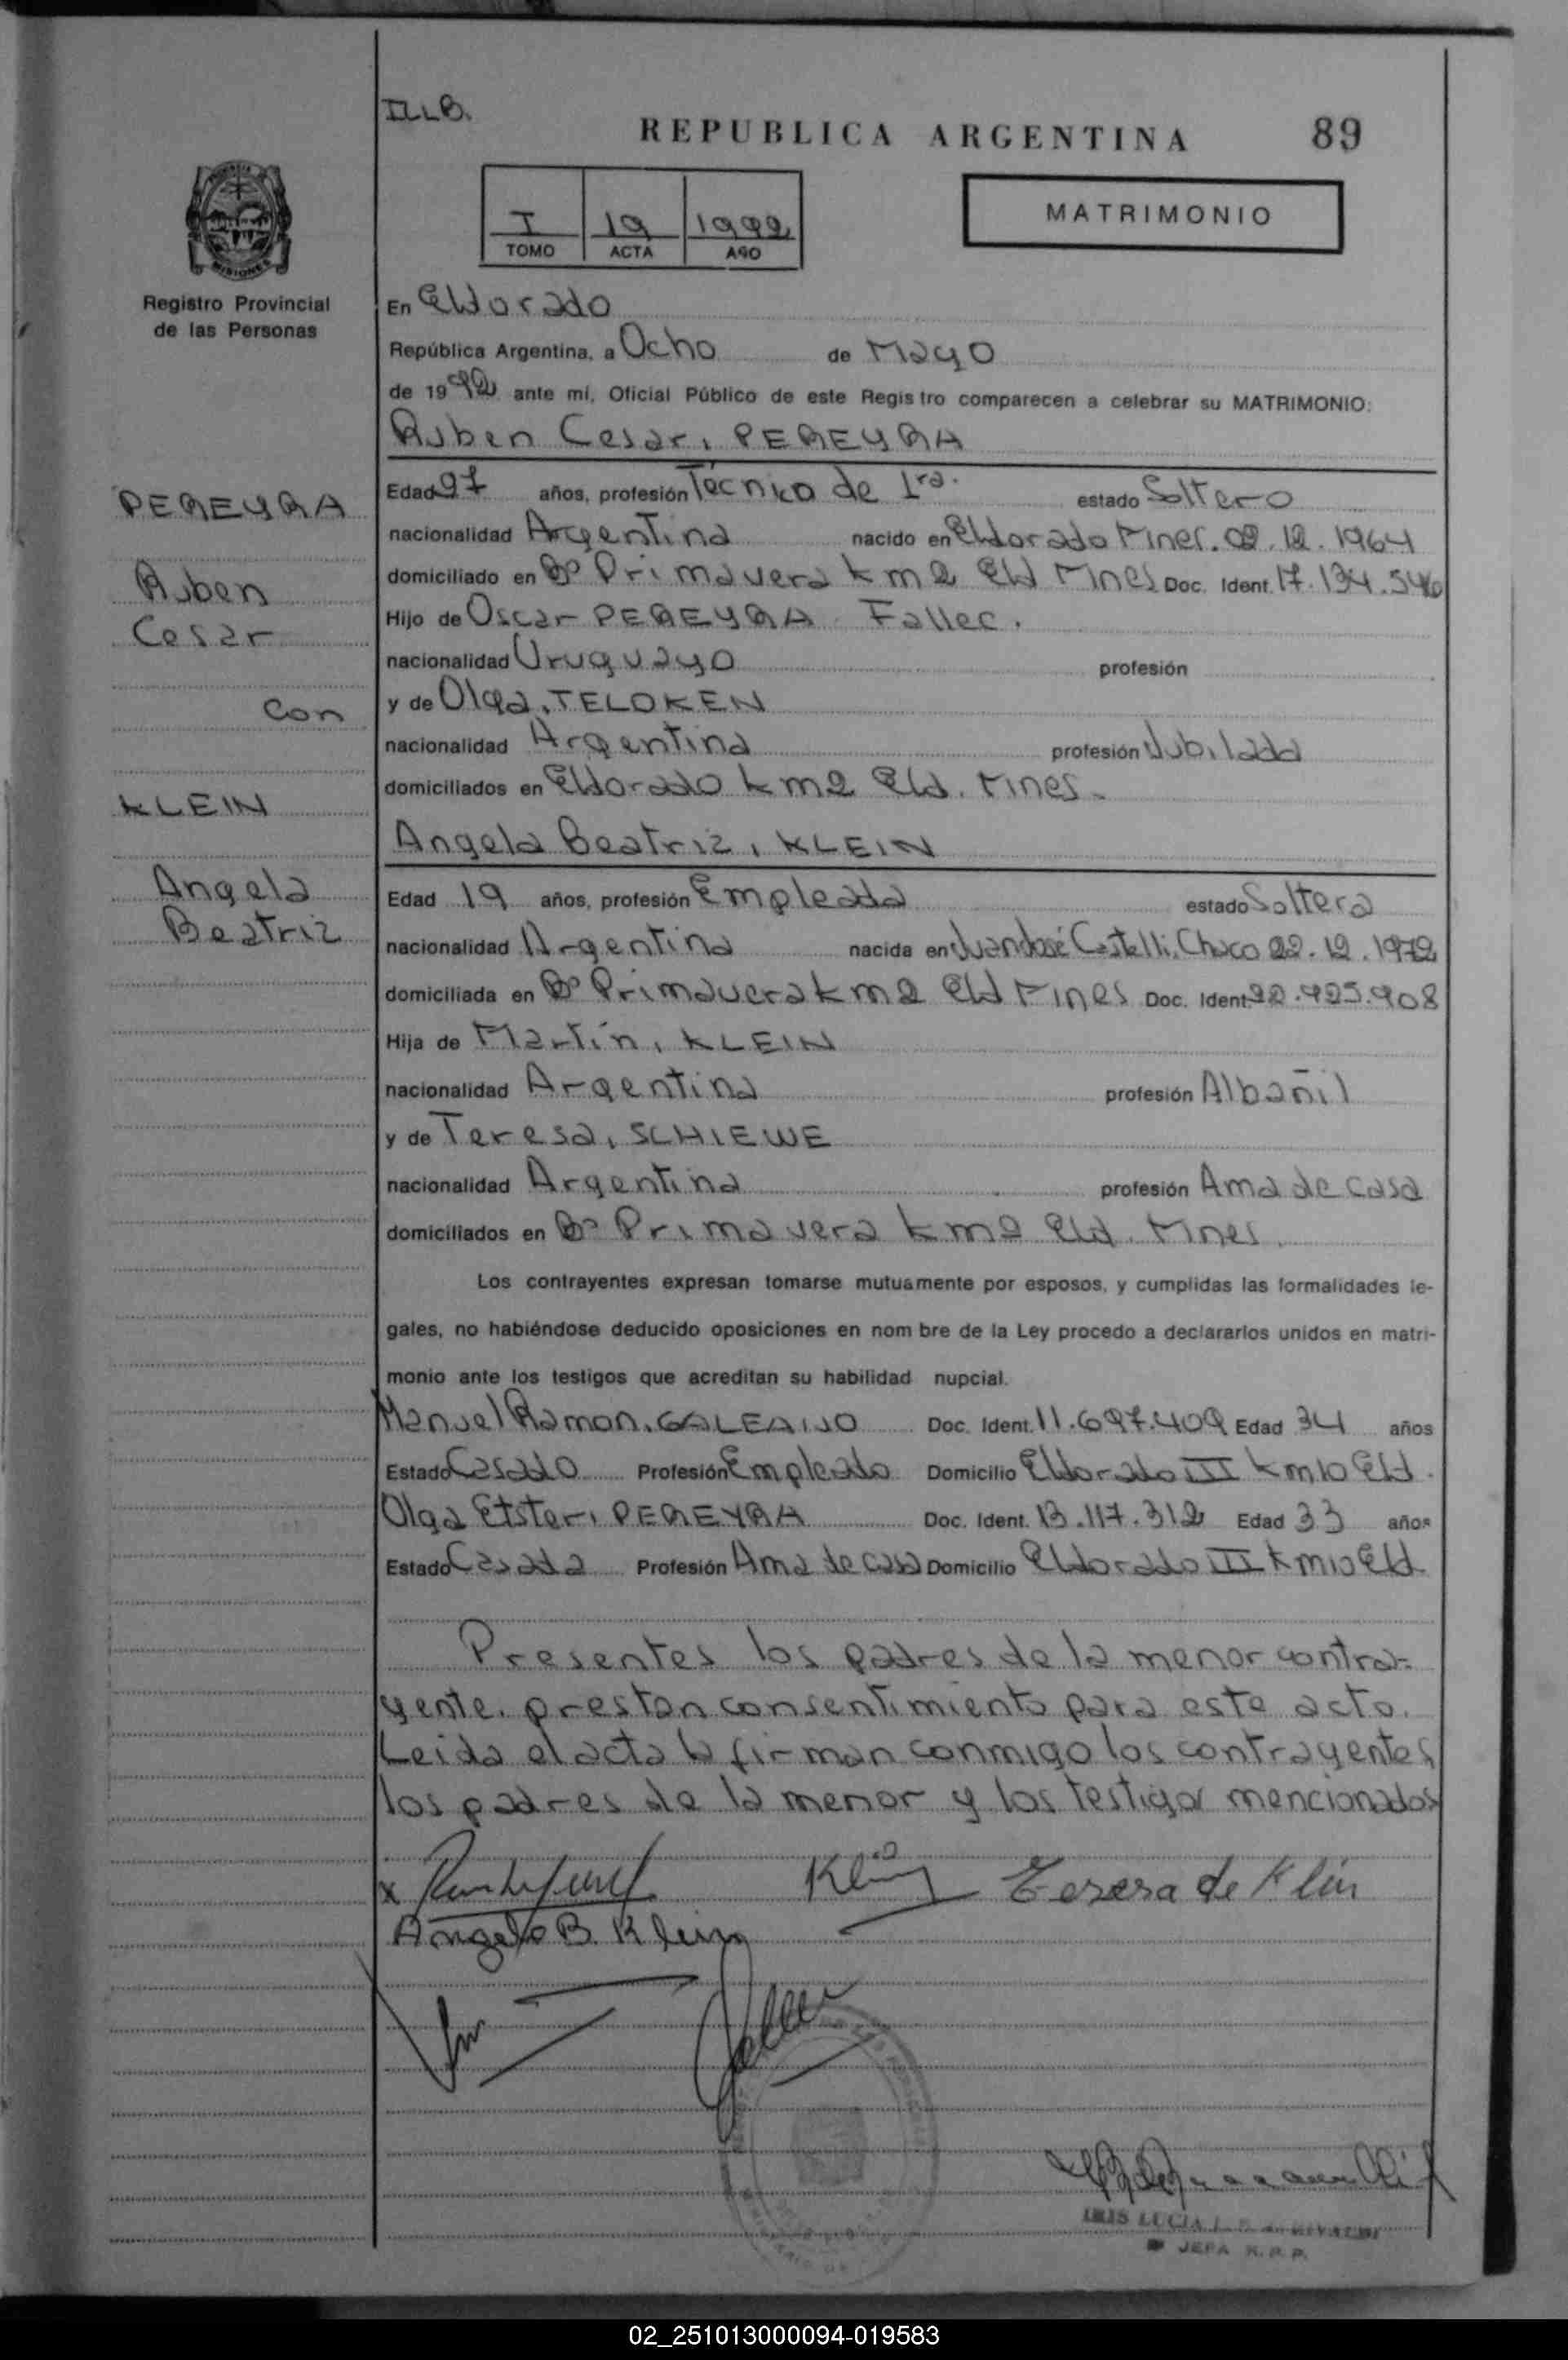 ILLB.
REPUBLICA ARGENTINA 89
I 19 1992
TOMO ACTA AÑO
MATRIMONIO
MISIONES
Registro Provincial
de las Personas
En Eldorado
República Argentina, a Ocho de Mayo
de 1992 ante mí, Oficial Público de este Registro comparecen a celebrar su MATRIMONIO:
Ruben Cesar, PEREYRA
PEREYRA
Ruben
Cesar
con
KLEIN
Angela
Beatriz
Edad 27 años, profesión Técnico de 1ra. estado Soltero
nacionalidad Argentina nacido en Eldorado Mnes. 02.12.1964
domiciliado en Bº Primavera km 2 Eld Mnes Doc. Ident. 17.134.546
Hijo de Oscar PEREYRA Fallec.
nacionalidad Uruguayo profesión
y de Olga, TELOKEN
nacionalidad Argentina profesión Jubilada
domiciliados en Eldorado km2 Eld. Mnes.
Angela Beatriz, KLEIN
Edad 19 años, profesión Empleada estado Soltera
nacionalidad Argentina nacida en Juan José Castelli, Chaco 22.12.1972
domiciliada en Bº Primavera km 2 Eld Mnes Doc. Ident. 22.925.908
Hija de Martín, KLEIN
nacionalidad Argentina profesión Albañil
y de Teresa, SCHIEWE
nacionalidad Argentina profesión Ama de casa
domiciliados en Bº Primavera km2 Eld. Mnes.
Los contrayentes expresan tomarse mutuamente por esposos, y cumplidas las formalidades le-
gales, no habiéndose deducido oposiciones en nom bre de la Ley procedo a declararlos unidos en matri-
monio ante los testigos que acreditan su habilidad nupcial.
Manuel Ramon, GALEANO Doc. Ident. 11.697.409 Edad 34 años
Estado Casado Profesión Empleado Domicilio Eldorado III km10 Eld.
Olga Etster, PEREYRA Doc. Ident. 13.117.312 Edad 33 años
Estado Casada Profesión Ama de casa Domicilio Eldorado III km10 Eld.
Presentes los padres de la menor contra-
yente, prestan consentimiento para este acto.
Leida el acta la firman conmigo los contrayentes
los padres de la menor y los testigos mencionados
x Klein Teresa de Klein
Angela B. Klein
IRIS LUCIA
JEFA R.P.P.
02_251013000094-019583